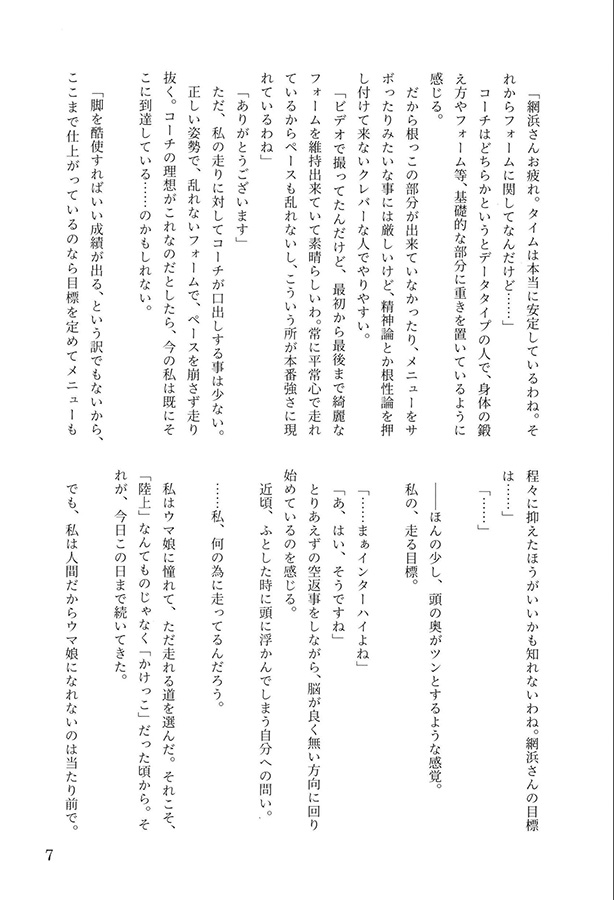 「網浜さんお疲れ。タイムは本当に安定しているわね。そ
れからフォームに関してなんだけど……」
コーチはどちらかというとデータタイプの人で、身体の鍛
え方やフォーム等、基礎的な部分に重きを置いているように
感じる。
だから根っこの部分が出来ていなかったり、メニューをサ
ボったりみたいな事には厳しいけど、精神論とか根性論を押
し付けて来ないクレバーな人でやりやすい。
「ビデオで撮ってたんだけど、最初から最後まで綺麗な
フォームを維持出来ていて素晴らしいわ。常に平常心で走れ
ているからペースも乱れないし、こういう所が本番強さに現
れているわね」
「ありがとうございます」
ただ、私の走りに対してコーチが口出しする事は少ない。
正しい姿勢で、乱れないフォームで、ペースを崩さず走り
抜く。コーチの理想がこれなのだとしたら、今の私は既にそ
こに到達している……のかもしれない。
「脚を酷使すればいい成績が出る、という訳でもないから、
ここまで仕上がっているのなら目標を定めてメニューも
程々に抑えたほうがいいかも知れないわね。網浜さんの目標
は……」
「……」
――ほんの少し、頭の奥がツンとするような感覚。
私の、走る目標。
「……まぁインターハイよね」
「あ、はい、そうですね」
とりあえずの空返事をしながら、脳が良く無い方向に回り
始めているのを感じる。
近頃、ふとした時に頭に浮かんでしまう自分への問い。
……私、何の為に走ってるんだろう。
私はウマ娘に憧れて、ただ走れる道を選んだ。それこそ、
「陸上」なんてものじゃなく「かけっこ」だった頃から。そ
れが、今日この日まで続いてきた。
でも、私は人間だからウマ娘になれないのは当たり前で。
7